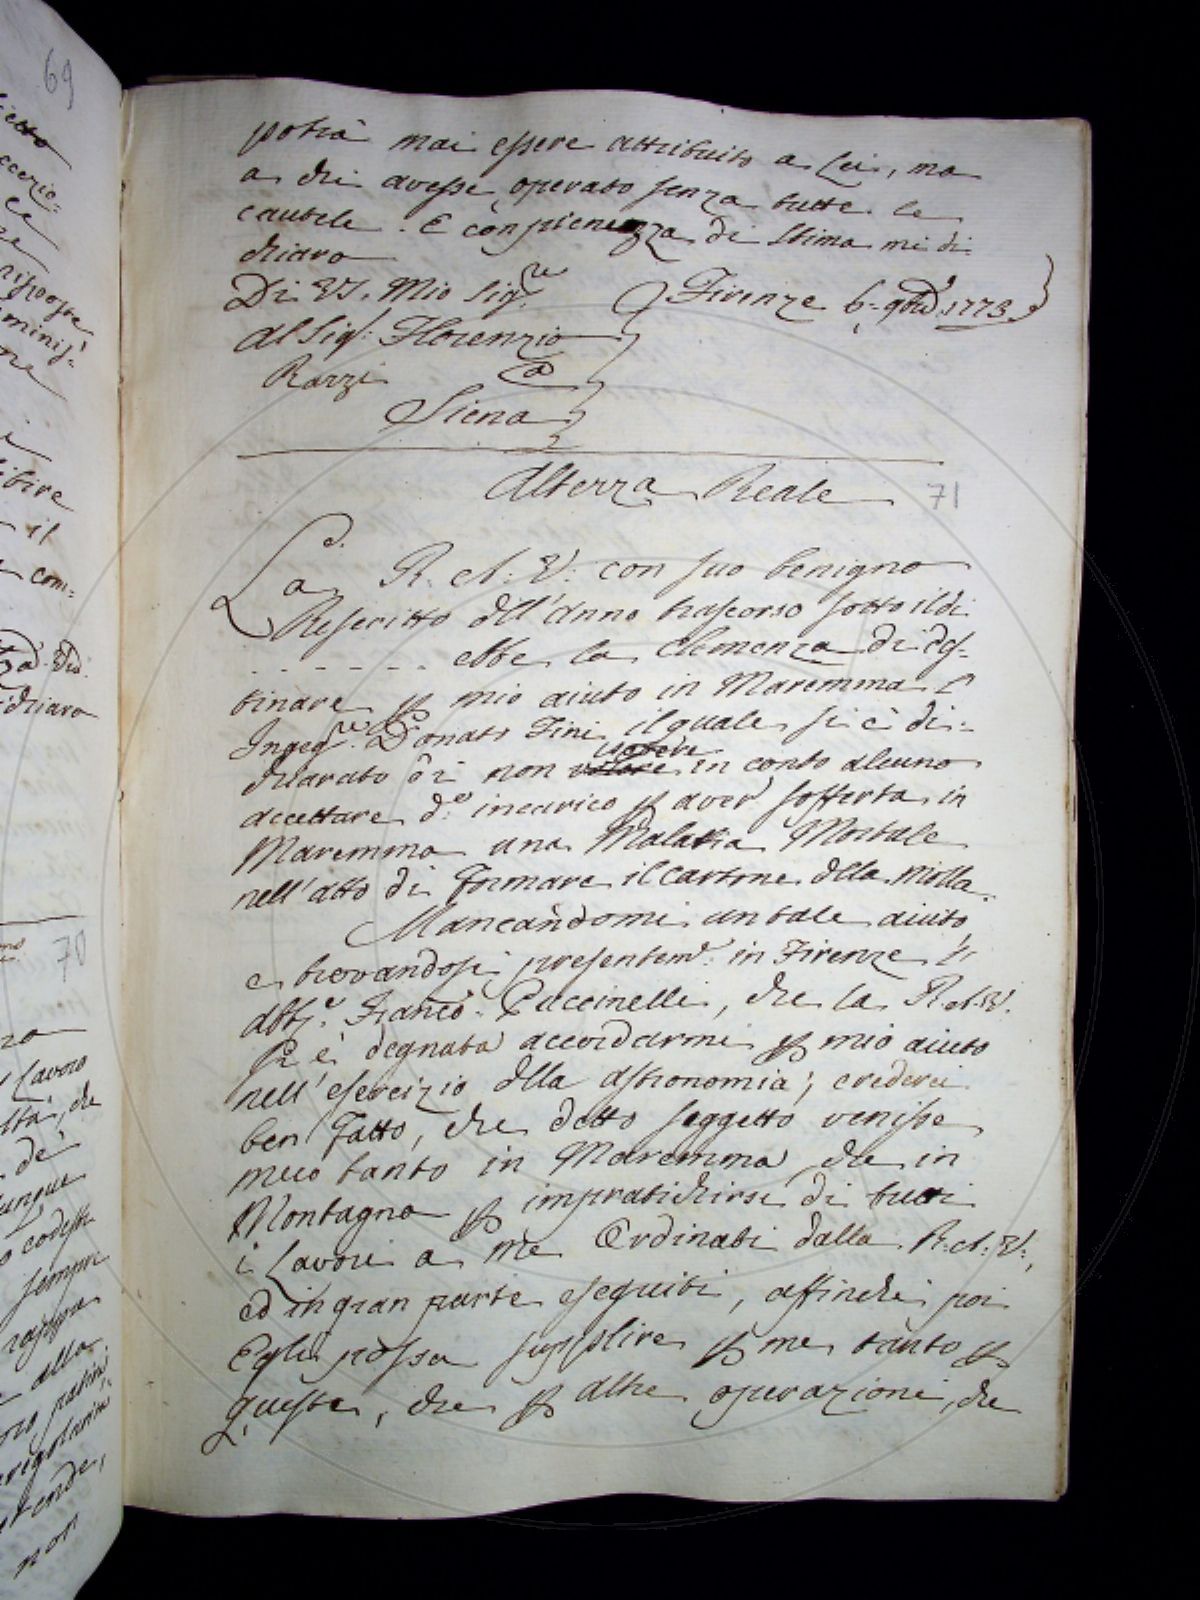 69
potrà mai essere attribuito a Lei, ma
a chi avesse operato senza tutte le
cautele. E con pienezza di stima mi di-
chiaro
Di VS. Mio Sig.re
Firenze 6. 9bre 1773.
Al Sig.r Florenzio
Razzi
Siena
Altezza Reale
71
La R. A: V: con suo benigno
Rescritto dell'Anno trascorso sotto il dì
. . . . . . . . ebbe la Clemenza di des-
tinare per mio aiuto in Maremma l'
Ingeg.re Donato Fini il quale si è di-
chiarato di non volere potere in conto alcuno
accettare d.o incarico per aver sofferta in
Maremma una Malattia Mortale
nell'atto di formare il cartone della Molla.
Mancandomi un tale aiuto,
e trovandosi presentem.e in Firenze l'
Abb.e Franco. Puccinelli, che la R.A.V.
si è degnata accordarmi per mio aiuto
nell'esercizio della Astronomia, crederei
ben fatto, che detto soggetto venisse
meco tanto in Maremma, che in
Montagna per impratichirsi di tutti
i Lavori a me Ordinati dalla R.A:V:,
ed in gran parte eseguiti, affinchè poi
Egli possa supplire per me tanto per
queste, che per altre operazioni, che
70